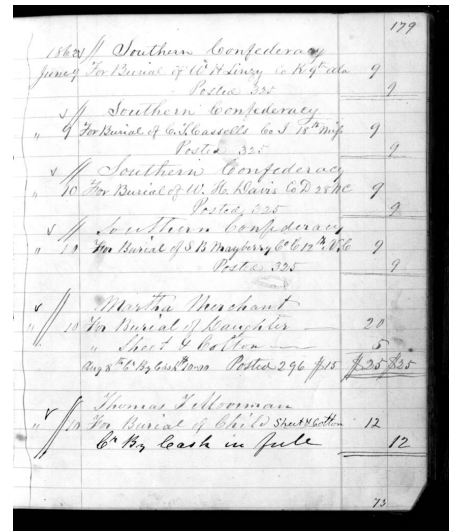 179
1862 Southern Confederacy
June 9 For Burial of W H Linzy Co K 9th Ala 9
Posted 325 9
Southern Confederacy
" 9 For Burial of C. T. Cassells Co I 18th Miss 9
Posted 325 9
Southern Confederacy
" 10 For Burial of W. H. Davis Co D 28 NC 9
Posted 325 9
Southern Confederacy
" 10 For Burial of S B Mayberry Co E 12th 9
Posted 325 9
Martha Merchant
" 10 For Burial of Daughter 20
" Sheet & Cotton 5
Aug 8th Cr By Cash 10.00 Posted 296 $15 $25 $25
Thomas F Moorman
" 10 For Burial of Child Sheet & Cotton 12
Cr By Cash in full 12
73